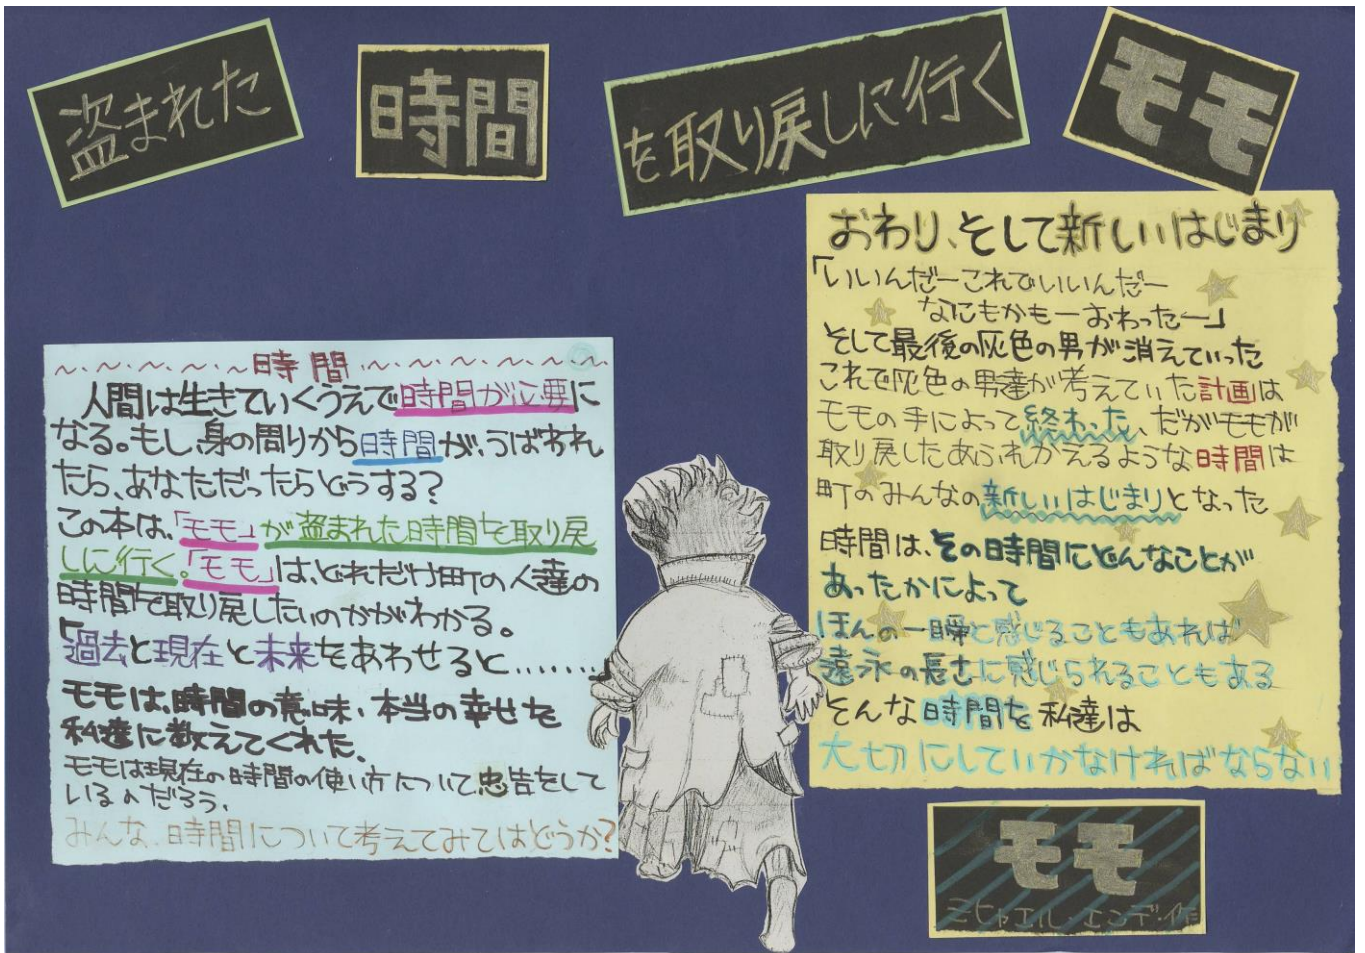 盗まれた
時間
を取り戻しに行く
モモ
時間
人間は生きていくうえで時間が必要に
なる。もし、身の周りから時間が、うばわれ
たら、あなただったらどうする?
この本は、「モモ」が盗まれた時間を取り戻
しに行く。「モモ」は、どれだけ町の人達の
時間を取り戻したいのかがわかる。
「過去と現在と未来をあわせると………
モモは、時間の意味、本当の幸せを
私達に教えてくれた、
モモは現在の時間の使い方について、忠告をして
いるのだろう、
みんな、時間について考えてみてはどうか?
おわり、そして新しいはじまり
「いいんだーこれでいいんだー
なにもかもーおわったー」
そして最後の灰色の男が消えていった
これで灰色の男達が考えていた計画は
モモの手によって終わった、だがモモが
取り戻したあふれかえるような時間は
町のみんなの新しいはじまりとなった
時間は、その時間にどんなことが
あったかによって
ほんの一瞬と感じることもあれば
遠永の長さに感じられることもある
そんな時間を私達は
大切にしていかなければならない
モモ
ミヒャエル・エンデ・作